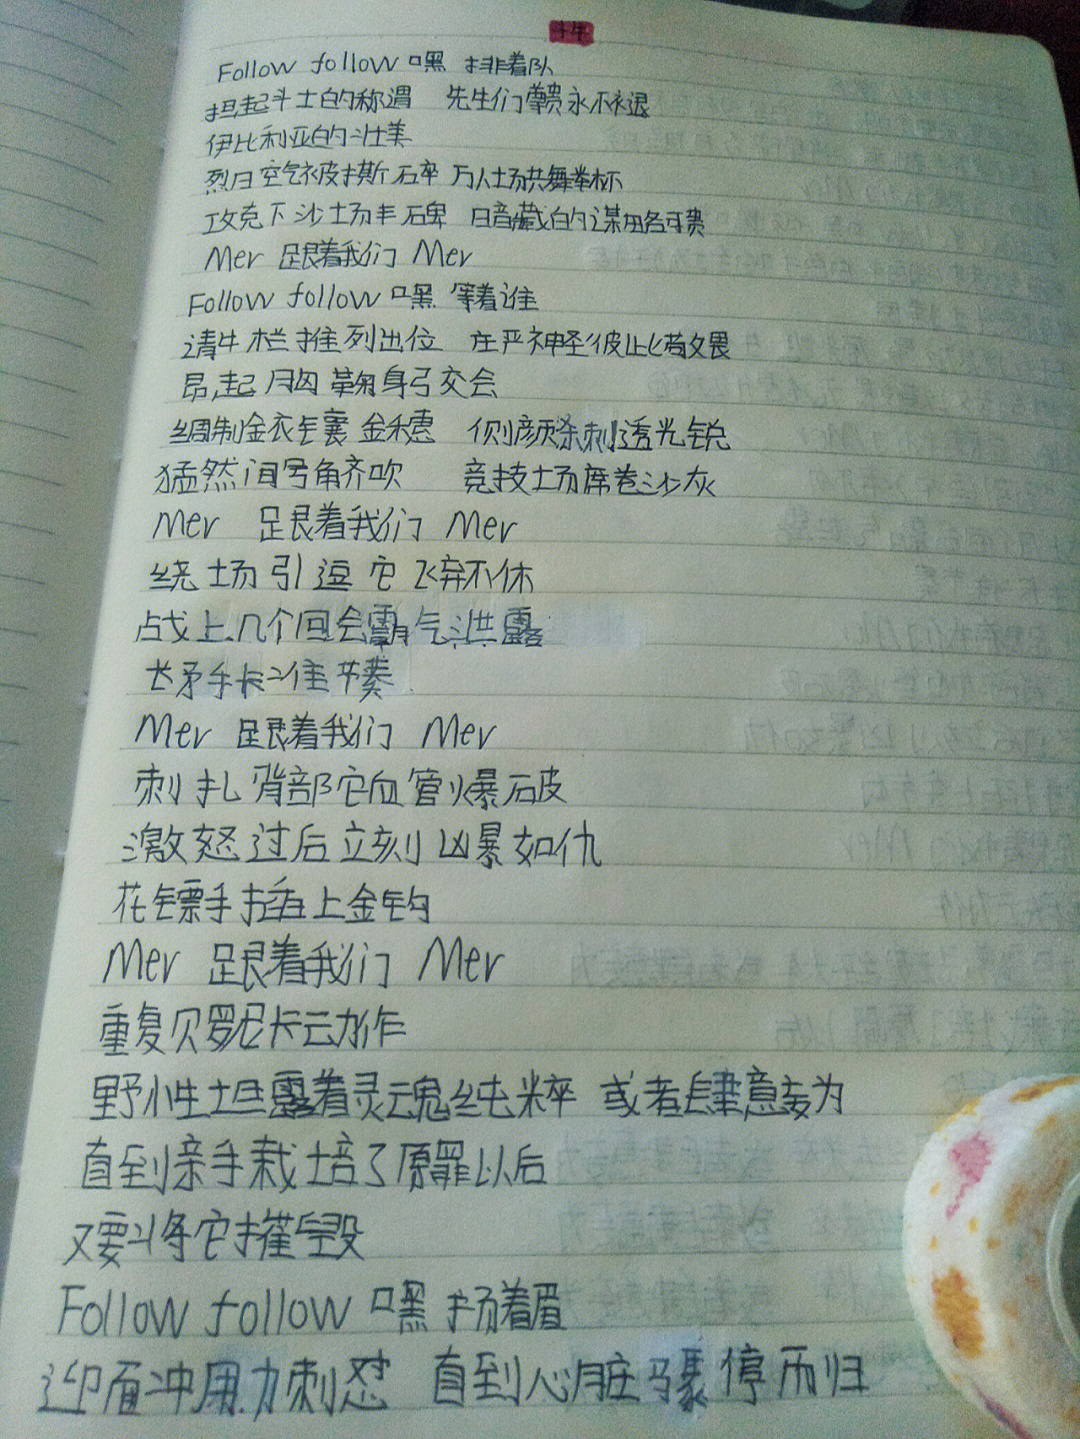 斗牛
Follow follow 嘿 排着队
担起斗士的称谓 先生们尊贵永不衰退
伊比利亚的壮美
烈日空气被撕碎 万人场共舞举杯
攻克下沙场丰碑 暗藏的谋略可费
Mer 跟着我们 Mer
Follow follow 嘿 等着谁
请牛栏推列出位 在严神圣彼此比着敬畏
昂起胸鞠身弓交会
绸制金衣 金穗 侧颜 刺透光锐
猛然间号角齐吹 竞技场席卷沙灰
Mer 跟着我们 Mer
绕场引逗它飞奔不休
战上几个回会霸气泄露
长矛手卡准节奏
Mer 跟着我们 Mer
刺扎背部它血管爆破
激怒过后立刻凶暴如仇
花镖手插上金钩
Mer 跟着我们 Mer
重复贝罗尼卡动作
野性坦露着灵魂纯粹 或者肆意妄为
直到亲手栽培了原罪以后
又要将它摧毁
Follow follow 嘿 扬着眉
迎面冲用力刺怼 直到心脏骤停而归